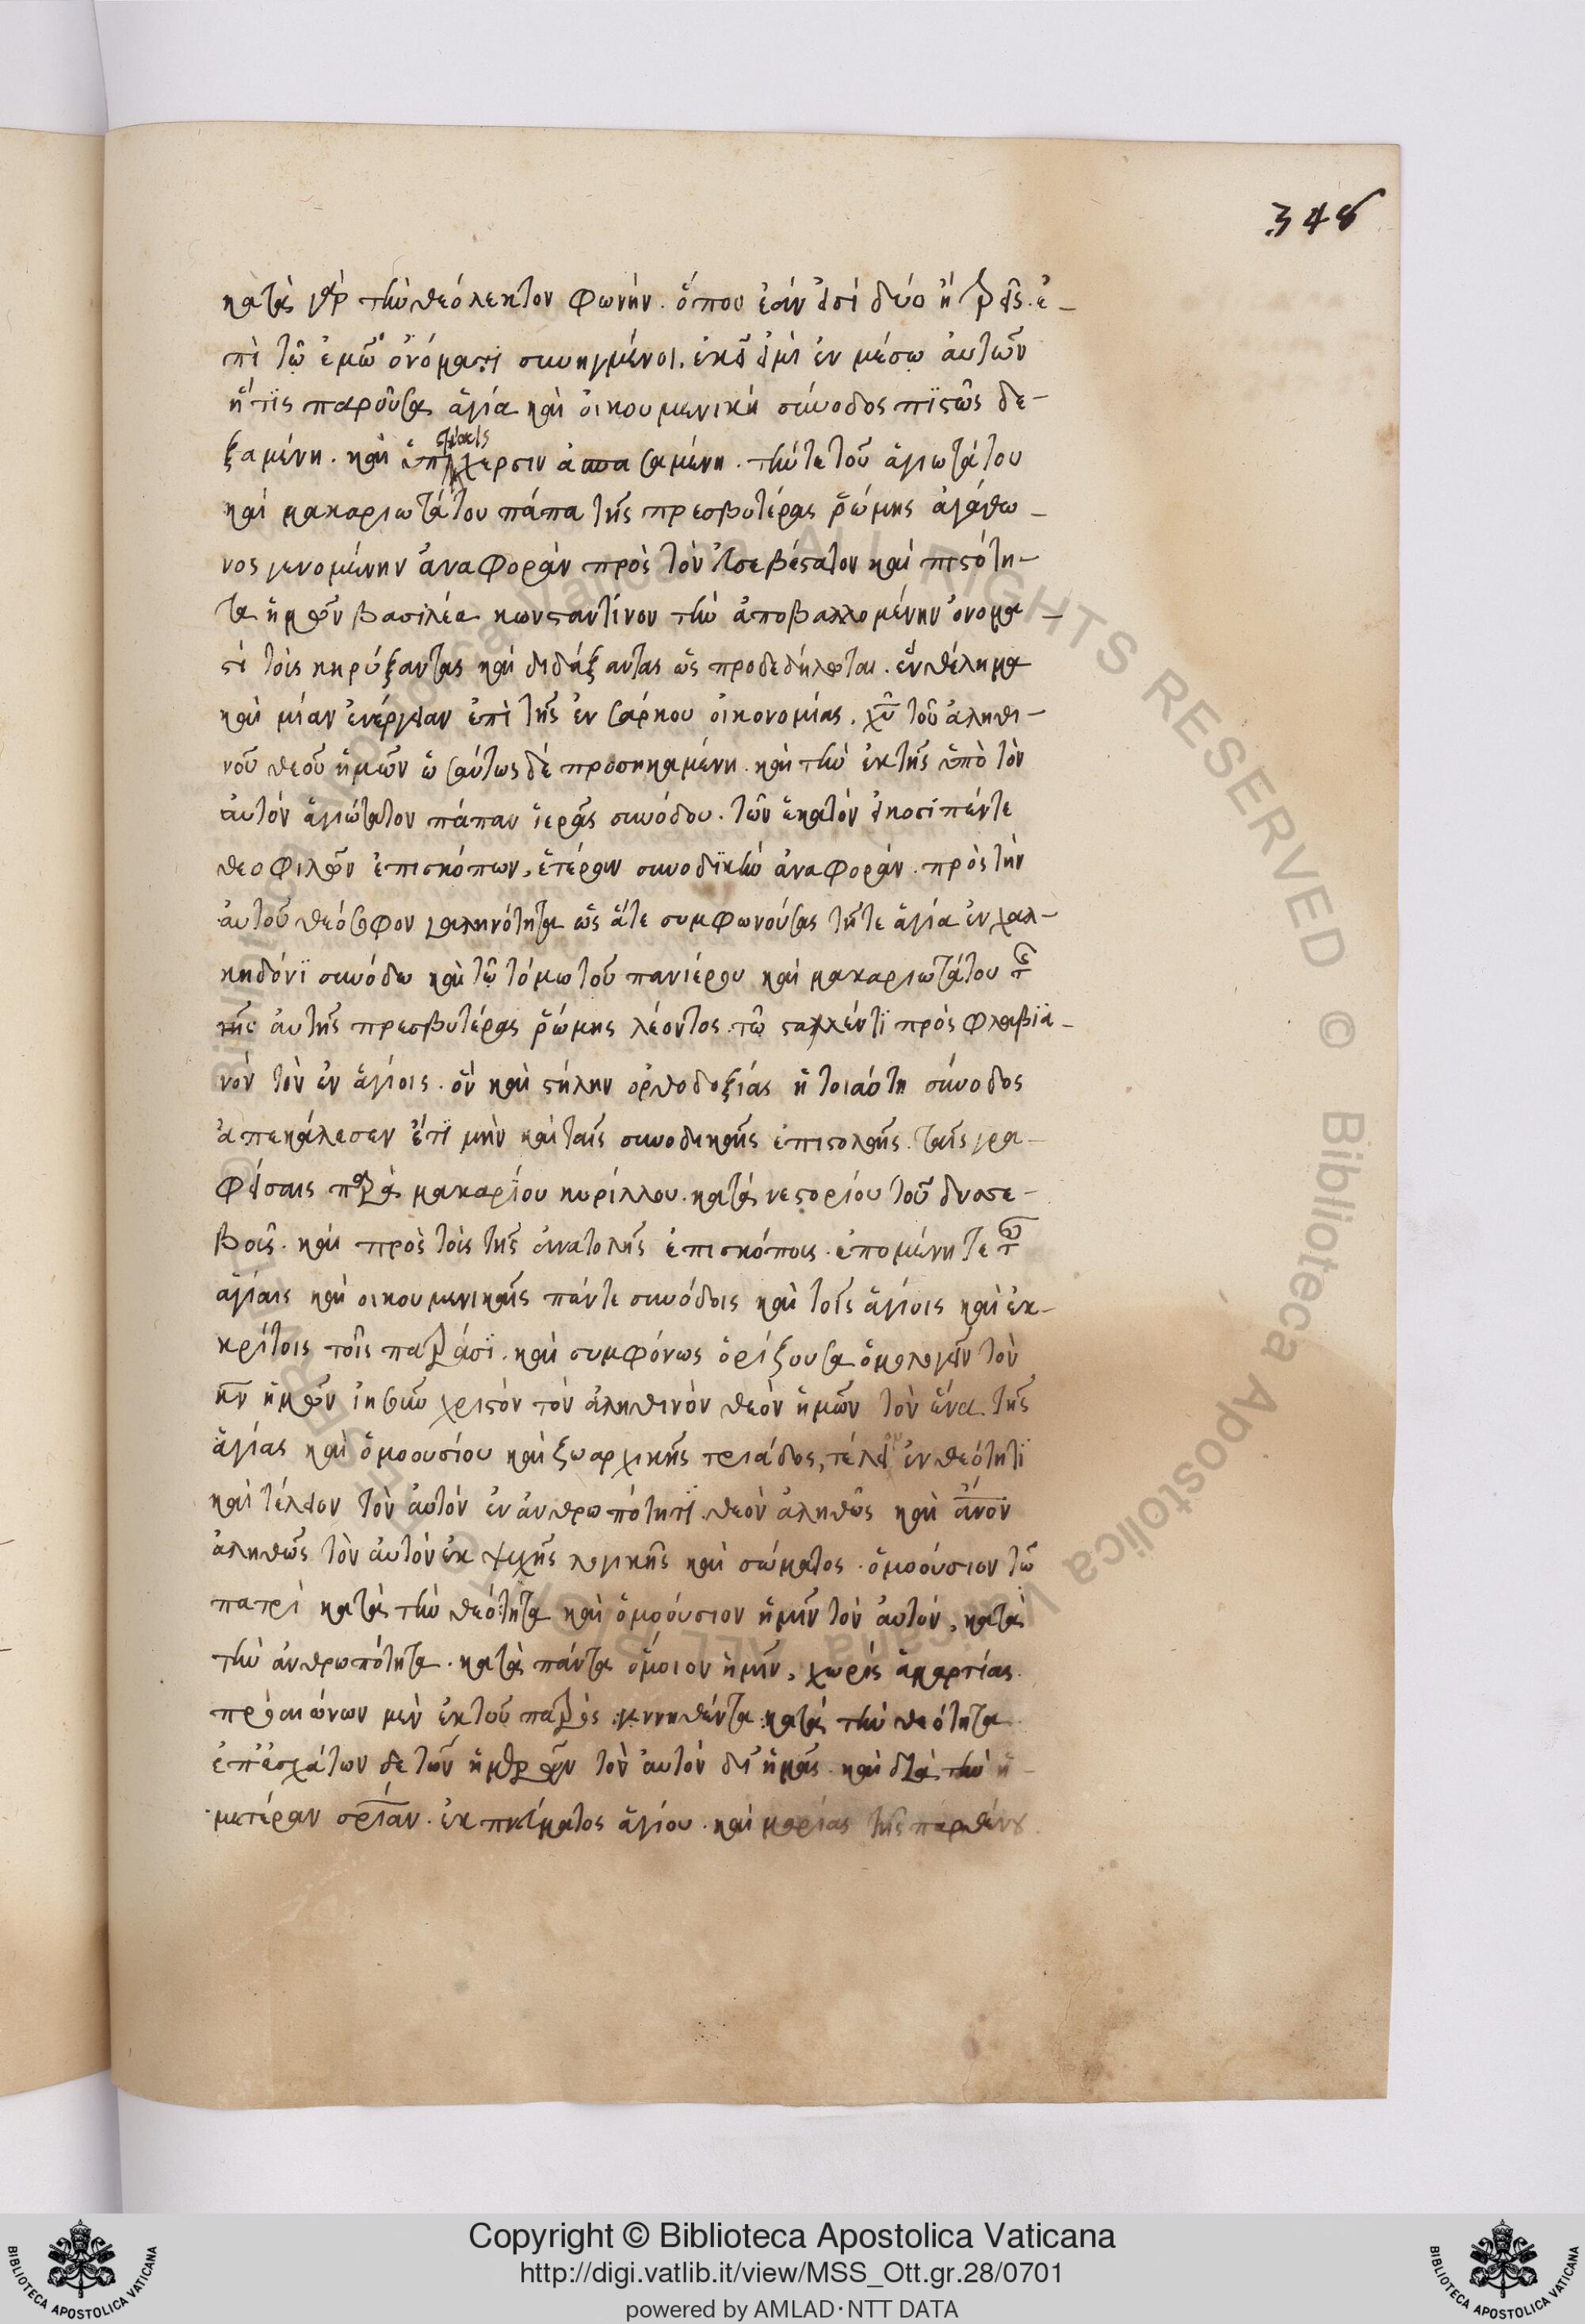 348
κατὰ γὰρ τὴν θεόλεκτον φωνὴν. ὅπου ἐάν εἰσὶ δύο ἢ τρεῖς. ἐ-
πὶ τῶ ἐμῶ ὀνόματι συνηγμένοι. ἐκεῖ εἰμὶ ἐν μέσω ἀυτῶν
ἥτϊς παροῦσα ἅγία καὶ ὀικουμενικὴ σύνοδος πϊςῶς δε-
ξαμένη. καὶ χερσὶν σαμένη. τήν τε τοῦ ἁγιωτάτου
καὶ μακαριωτάτου πάπα τῆς πρεσβυτέρας ῥώμης ἀγάθω-
νος γενομένην ἀναφορὰν πρὸς τὸν ἐυσεβέςατον καὶ πιςότη-
τα ἡμῶν βασιλέα κωνςαντίνον τὴν ἀποβαλλομένην ὀνομα-
ςὶ τοὶς κηρύξαντας καὶ διδάξαντας ὡς προδεδήλωται. ἓν θέλημα
καὶ μίαν ἐνέργειαν ἐπὶ τῆς ἐν σάρκου ὀικονομίας. χῦ τοῦ ἀληθι-
νοῦ θεοῦ ἡμῶν ὡσάυτως δὲ προσηκαμένη. καὶ τὴν ἐκ τῆς ὑπὸ τὸν
ἀυτὸν ἁγιώτατον πάπαν ἱερᾶς συνόδου. τῶν ἑκατὸν εἰκοσίπέντε
θεοφιλῶν ἐπισκόπων, ἑτέραν συνοδϊκὴν ἀναφορὰν. πρὸς τὴν
ἀυτοῦ θεόσοφον γαληνότητα ὡς ἅτε συμφωνούσας τῆ τε ἅγία ἐν χαλ-
κηδόνϊ συνόδω καὶ τῶ τόμω τοῦ πανιέρου καὶ μακαριωτάτου
τῆς ἀυτῆς πρεσβυτέρας ῥώμης λέοντος. τῶ ςαλλέντϊ πρὸς φλαβϊα-
νὸν τὸν ἐν ἁγίοις. ὃν καὶ ςήλην ὀρθοδοξίας ἡ τοιαύτη σύνοδος
ἀπεκάλεσεν ἔτϊ μὴν καὶ ταῖς συνοδικαῖς ἐπιςολαῖς. ταῖς γρα-
φείσαις παρὰ μακαρϊου κυρίλλου. κατὰ νεςορίου τοῦ δυσσε-
βοῖς. καὶ πρὸς τοὶς τῆς ἀνατολῆς ἐπισκόποις. ἑπομένη τε
ἁγίαις καὶ οικουμενικαῖς πέντε συνόδοις καὶ τοῖς ἁγίοις καὶ ἐκ-
κρίτοις τοῖς πατράσϊ. καὶ συμφόνως ὁρίζουσα ὁμολογεῖν τὸν
κν ἡμῶν ἰησοῦν χριςὸν τὸν ἀληθινὸν θεὸν ἡμῶν τὸν ἕνα τῆς
ἁγίας καὶ ὁμοουσίου καὶ ζωαρχικῆς τριάδος, τέλειον ἐν θεότητϊ
καὶ τέλειον τὸν ἀυτὸν ἐν ἀνθρωπότητϊ. θεὸν ἀληθῶς καὶ ἄνον
ἀληθῶς τὸν ἀυτὸν ἐκ ψιχῆς λογικῆς καὶ σώματος. ὁμοούσιον τῶ
πατρὶ κατὰ τὴν θεότητα καὶ ὁμοούσιον ἡμῖν τὸν ἀυτὸν, κατὰ
τὴν ἀνθρωπότητα. κατὰ πάντα ὅμοιον ἡμῖν, χωρὶς ἁμαρτίας.
πρὸ αιώνων μὲν ἐκ τοῦ πατρὸς γεννηθέντα κατὰ τὴν θεότητα.
ἐπ' ἐσχάτων δε τῶν ἡμερῶν τὸν ἀυτὸν δι' ἡμᾶς. καὶ διὰ τὴν ἡ-
μετέραν σριαν. ἐκ πνεύματος ἁγίου. καὶ μαρίας τῆς παρθένου
Copyright © Biblioteca Apostolica Vaticana
http://digi.vatlib.it/view/MSS_Ott.gr.28/0701
powered by AMLAD·NTT DATA
BIBLIOTECA APOSTOLICA VATICANA
BIBLIOTECA APOSTOLICA VATICANA